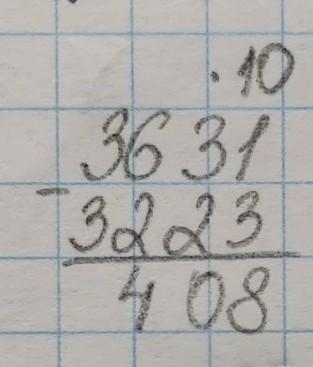 . 10
3631
-
3223
408